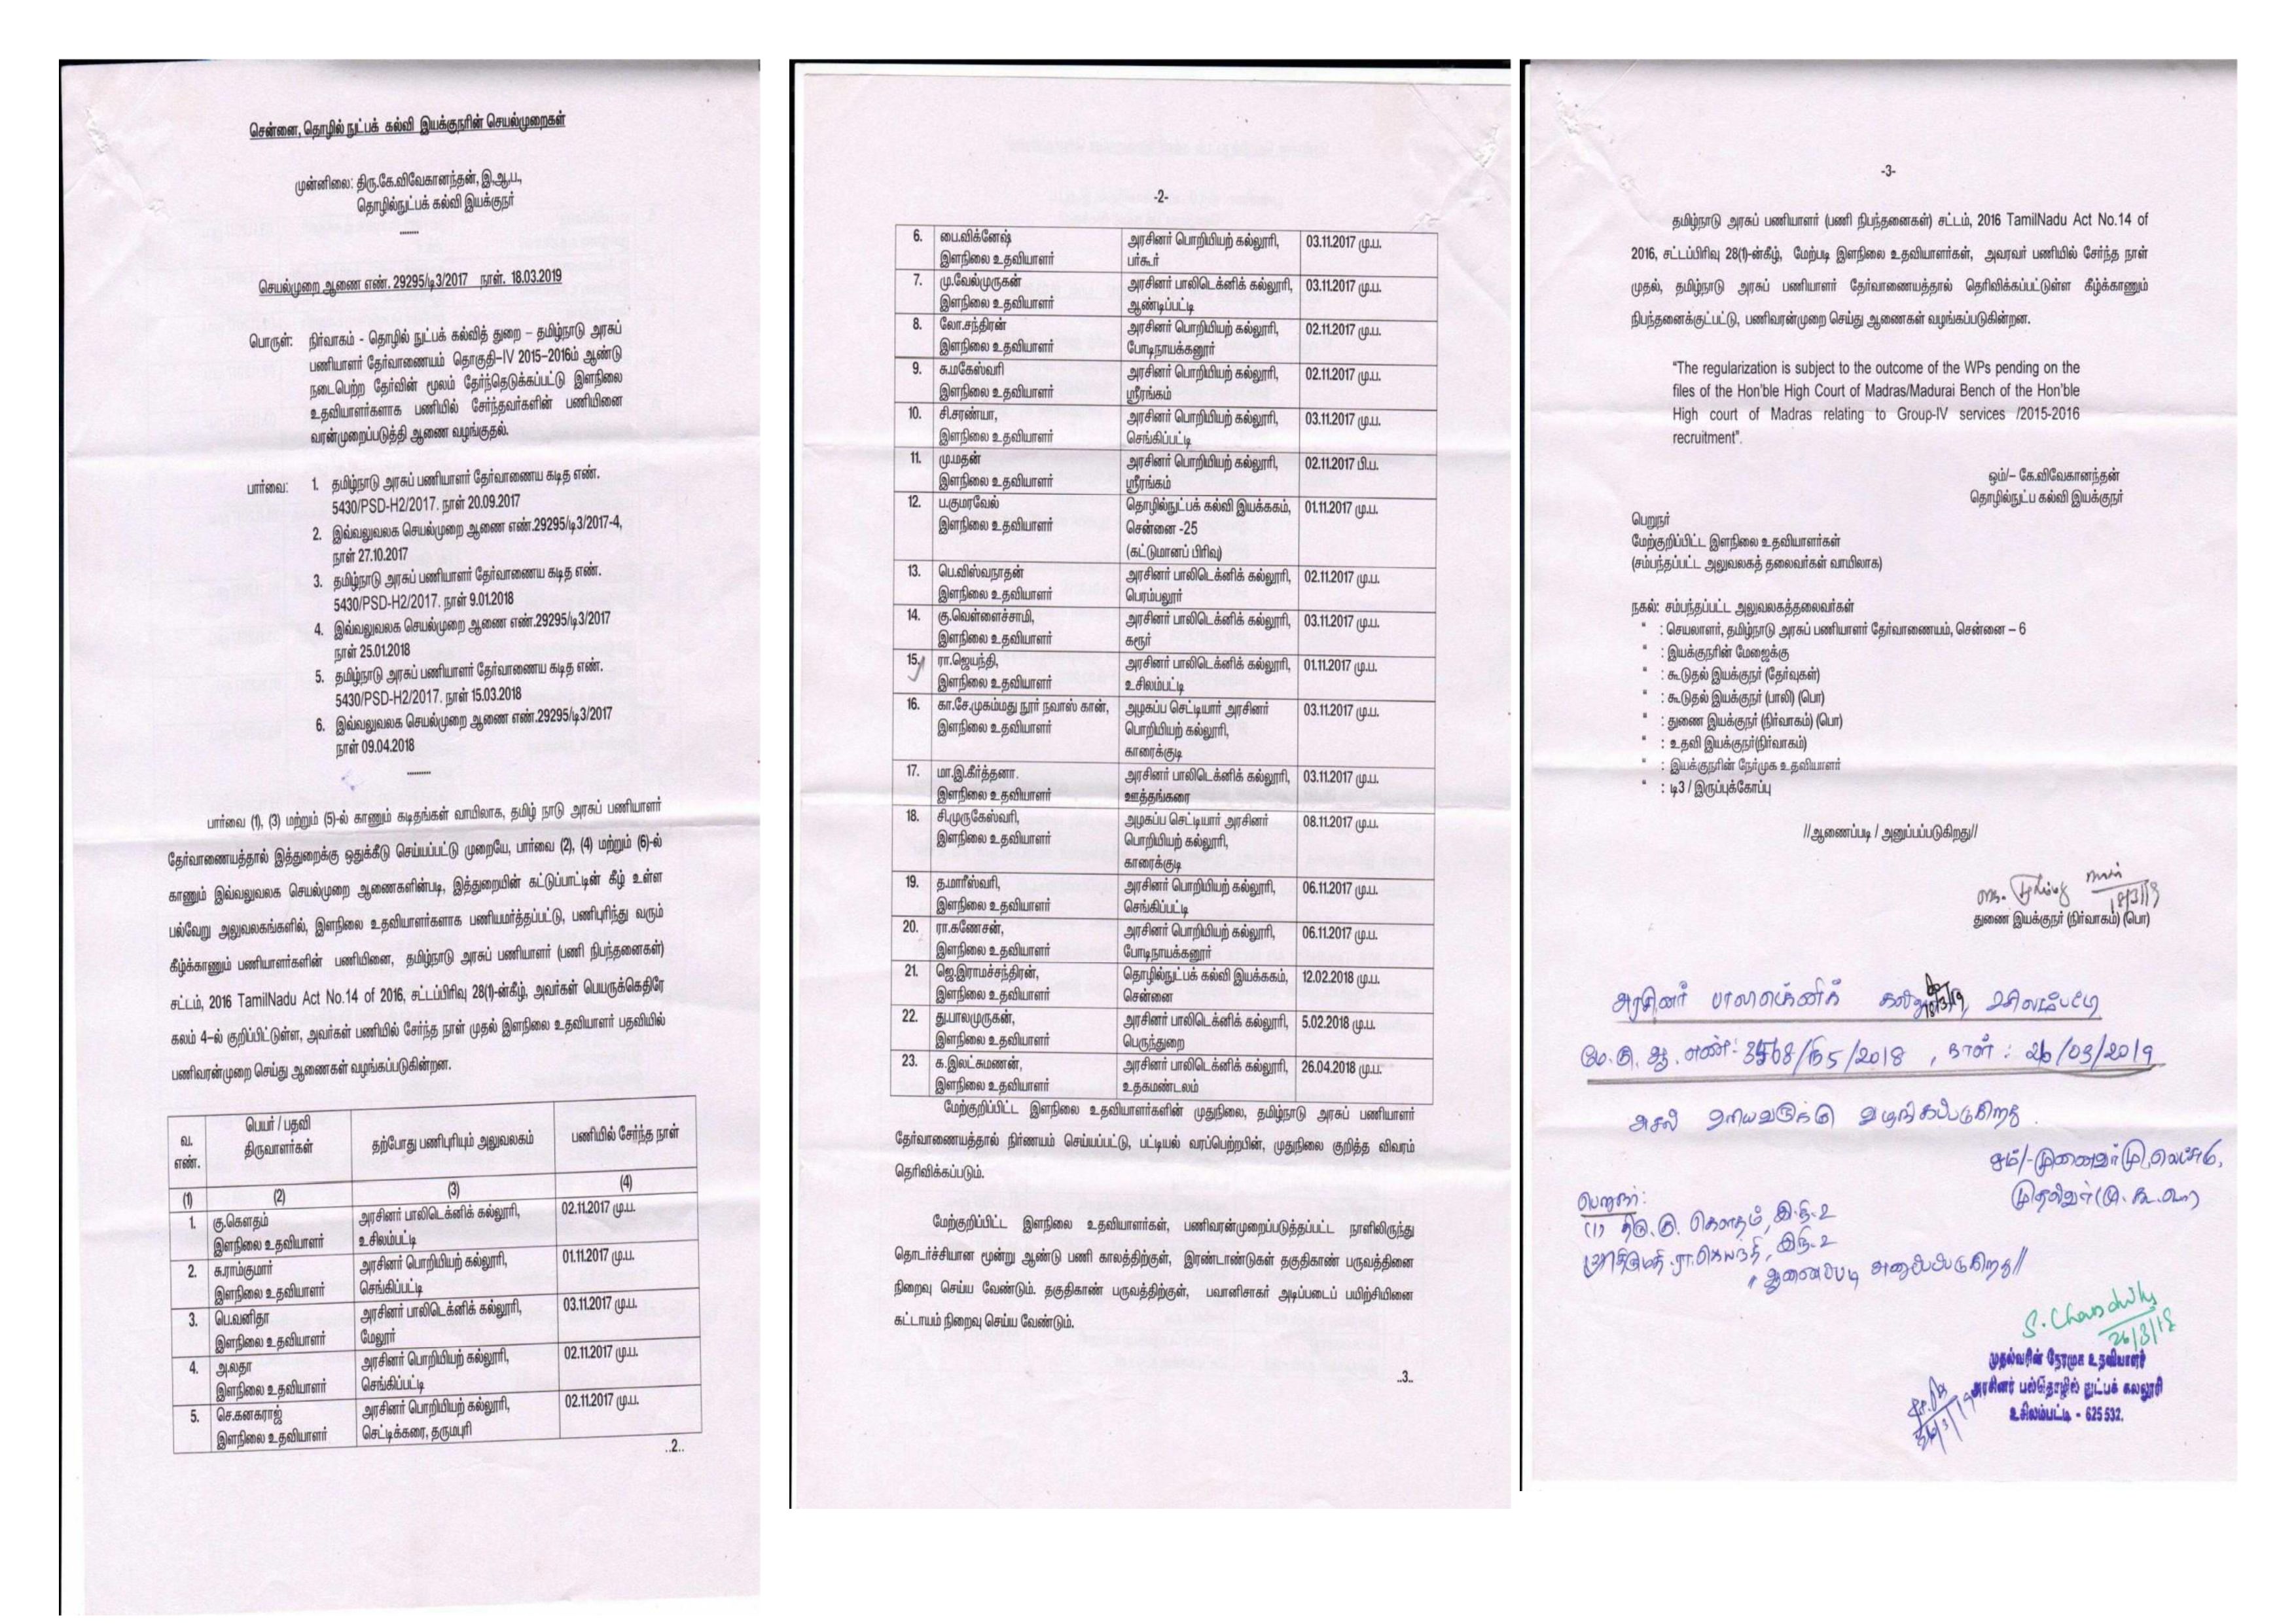 சென்னை, தொழில் நுட்பக் கல்வி இயக்குநரின் செயல்முறைகள்
முன்னிலை: திரு.கே.விவேகானந்தன், இ.ஆ.ப.,
தொழில்நுட்பக் கல்வி இயக்குநர்
.......
செயல்முறை ஆணை எண். 29295/டி3/2017 நாள். 18.03.2019
பொருள்: நிர்வாகம் - தொழில் நுட்பக் கல்வித் துறை – தமிழ்நாடு அரசுப்
பணியாளர் தேர்வாணையம் தொகுதி–IV 2015–2016ம் ஆண்டு
நடைபெற்ற தேர்வின் மூலம் தேர்ந்தெடுக்கப்பட்டு இளநிலை
உதவியாளர்களாக பணியில் சேர்ந்தவர்களின் பணியினை
வரன்முறைப்படுத்தி ஆணை வழங்குதல்.
பார்வை: 1. தமிழ்நாடு அரசுப் பணியாளர் தேர்வாணைய கடித எண்.
5430/PSD-H2/2017. நாள் 20.09.2017
2. இவ்வலுவலக செயல்முறை ஆணை எண்.29295/டி3/2017-4,
நாள் 27.10.2017
3. தமிழ்நாடு அரசுப் பணியாளர் தேர்வாணைய கடித எண்.
5430/PSD-H2/2017. நாள் 9.01.2018
4. இவ்வலுவலக செயல்முறை ஆணை எண்.29295/டி3/2017
நாள் 25.01.2018
5. தமிழ்நாடு அரசுப் பணியாளர் தேர்வாணைய கடித எண்.
5430/PSD-H2/2017. நாள் 15.03.2018
6. இவ்வலுவலக செயல்முறை ஆணை எண்.29295/டி3/2017
நாள் 09.04.2018
.........
பார்வை (1), (3) மற்றும் (5)-ல் காணும் கடிதங்கள் வாயிலாக, தமிழ் நாடு அரசுப் பணியாளர்
தேர்வாணையத்தால் இத்துறைக்கு ஒதுக்கீடு செய்யப்பட்டு முறையே, பார்வை (2), (4) மற்றும் (6)-ல்
காணும் இவ்வலுவலக செயல்முறை ஆணைகளின்படி, இத்துறையின் கட்டுப்பாட்டின் கீழ் உள்ள
பல்வேறு அலுவலகங்களில், இளநிலை உதவியாளர்களாக பணியமர்த்தப்பட்டு, பணிபுரிந்து வரும்
கீழ்க்காணும் பணியாளர்களின் பணியினை, தமிழ்நாடு அரசுப் பணியாளர் (பணி நிபந்தனைகள்)
சட்டம், 2016 TamilNadu Act No.14 of 2016, சட்டப்பிரிவு 28(1)-ன்கீழ், அவர்கள் பெயருக்கெதிரே
கலம் 4–ல் குறிப்பிட்டுள்ள, அவர்கள் பணியில் சேர்ந்த நாள் முதல் இளநிலை உதவியாளர் பதவியில்
பணிவரன்முறை செய்து ஆணைகள் வழங்கப்படுகின்றன.
வ. எண். பெயர் / பதவி திருவாளர்கள் தற்போது பணிபுரியும் அலுவலகம் பணியில் சேர்ந்த நாள்
(1) (2) (3) (4)
1. கு.கௌதம் அரசினர் பாலிடெக்னிக் கல்லூரி, 02.11.2017 மு.ப.
இளநிலை உதவியாளர் உசிலம்பட்டி
2. சு.ராம்குமார் அரசினர் பொறியியற் கல்லூரி, 01.11.2017 மு.ப.
இளநிலை உதவியாளர் செங்கிப்பட்டி
3. பெ.வனிதா அரசினர் பாலிடெக்னிக் கல்லூரி, 03.11.2017 மு.ப.
இளநிலை உதவியாளர் மேலூர்
4. அ.லதா அரசினர் பொறியியற் கல்லூரி, 02.11.2017 மு.ப.
இளநிலை உதவியாளர் செங்கிப்பட்டி
5. செ.கனகராஜ் அரசினர் பொறியியற் கல்லூரி, 02.11.2017 மு.ப.
இளநிலை உதவியாளர் செட்டிக்கரை, தருமபுரி
..2..
-2-
6. பை.விக்னேஷ் அரசினர் பொறியியற் கல்லூரி, 03.11.2017 மு.ப.
இளநிலை உதவியாளர் பர்கூர்
7. மு.வேல்முருகன் அரசினர் பாலிடெக்னிக் கல்லூரி, 03.11.2017 மு.ப.
இளநிலை உதவியாளர் ஆண்டிப்பட்டி
8. லோ.சந்திரன் அரசினர் பொறியியற் கல்லூரி, 02.11.2017 மு.ப.
இளநிலை உதவியாளர் போடிநாயக்கனூர்
9. சு.மகேஸ்வரி அரசினர் பொறியியற் கல்லூரி, 02.11.2017 மு.ப.
இளநிலை உதவியாளர் ஸ்ரீரங்கம்
10. சி.சரண்யா, அரசினர் பொறியியற் கல்லூரி, 03.11.2017 மு.ப.
இளநிலை உதவியாளர் செங்கிப்பட்டி
11. மு.மதன் அரசினர் பொறியியற் கல்லூரி, 02.11.2017 பி.ப.
இளநிலை உதவியாளர் ஸ்ரீரங்கம்
12. ப.குமரவேல் தொழில்நுட்பக் கல்வி இயக்ககம், 01.11.2017 மு.ப.
இளநிலை உதவியாளர் சென்னை -25
(கட்டுமானப் பிரிவு)
13. பெ.விஸ்வநாதன் அரசினர் பாலிடெக்னிக் கல்லூரி, 02.11.2017 மு.ப.
இளநிலை உதவியாளர் பெரம்பலூர்
14. கு.வெள்ளைச்சாமி, அரசினர் பாலிடெக்னிக் கல்லூரி, 03.11.2017 மு.ப.
இளநிலை உதவியாளர் கரூர்
15. ரா.ஜெயந்தி, அரசினர் பாலிடெக்னிக் கல்லூரி, 01.11.2017 மு.ப.
இளநிலை உதவியாளர் உசிலம்பட்டி
16. கா.சே.முகம்மது நூர் நவாஸ் கான், அழகப்ப செட்டியார் அரசினர் 03.11.2017 மு.ப.
இளநிலை உதவியாளர் பொறியியற் கல்லூரி,
காரைக்குடி
17. மா.இ.கீர்த்தனா. அரசினர் பாலிடெக்னிக் கல்லூரி, 03.11.2017 மு.ப.
இளநிலை உதவியாளர் ஊத்தங்கரை
18. சி.முருகேஸ்வரி, அழகப்ப செட்டியார் அரசினர் 08.11.2017 மு.ப.
இளநிலை உதவியாளர் பொறியியற் கல்லூரி,
காரைக்குடி
19. த.மாரீஸ்வரி, அரசினர் பொறியியற் கல்லூரி, 06.11.2017 மு.ப.
இளநிலை உதவியாளர் செங்கிப்பட்டி
20. ரா.கணேசன், அரசினர் பொறியியற் கல்லூரி, 06.11.2017 மு.ப.
இளநிலை உதவியாளர் போடிநாயக்கனூர்
21. ஜெ.இராமச்சந்திரன், தொழில்நுட்பக் கல்வி இயக்ககம், 12.02.2018 மு.ப.
இளநிலை உதவியாளர் சென்னை
22. து.பாலமுருகன், அரசினர் பாலிடெக்னிக் கல்லூரி, 5.02.2018 மு.ப.
இளநிலை உதவியாளர் பெருந்துறை
23. க.இலட்சுமணன், அரசினர் பாலிடெக்னிக் கல்லூரி, 26.04.2018 மு.ப.
இளநிலை உதவியாளர் உதகமண்டலம்
மேற்குறிப்பிட்ட இளநிலை உதவியாளர்களின் முதுநிலை, தமிழ்நாடு அரசுப் பணியாளர்
தேர்வாணையத்தால் நிர்ணயம் செய்யப்பட்டு, பட்டியல் வரப்பெற்றபின், முதுநிலை குறித்த விவரம்
தெரிவிக்கப்படும்.
மேற்குறிப்பிட்ட இளநிலை உதவியாளர்கள், பணிவரன்முறைப்படுத்தப்பட்ட நாளிலிருந்து
தொடர்ச்சியான மூன்று ஆண்டு பணி காலத்திற்குள், இரண்டாண்டுகள் தகுதிகாண் பருவத்தினை
நிறைவு செய்ய வேண்டும். தகுதிகாண் பருவத்திற்குள், பவானிசாகர் அடிப்படைப் பயிற்சியினை
கட்டாயம் நிறைவு செய்ய வேண்டும்.
..3..
-3-
தமிழ்நாடு அரசுப் பணியாளர் (பணி நிபந்தனைகள்) சட்டம், 2016 TamilNadu Act No.14 of
2016, சட்டப்பிரிவு 28(1)-ன்கீழ், மேற்படி இளநிலை உதவியாளர்கள், அவரவர் பணியில் சேர்ந்த நாள்
முதல், தமிழ்நாடு அரசுப் பணியாளர் தேர்வாணையத்தால் தெரிவிக்கப்பட்டுள்ள கீழ்க்காணும்
நிபந்தனைக்குட்பட்டு, பணிவரன்முறை செய்து ஆணைகள் வழங்கப்படுகின்றன.
"The regularization is subject to the outcome of the WPs pending on the
files of the Hon'ble High Court of Madras/Madurai Bench of the Hon'ble
High court of Madras relating to Group-IV services /2015-2016
recruitment".
ஒம்/– கே.விவேகானந்தன்
தொழில்நுட்ப கல்வி இயக்குநர்
பெறுநர்
மேற்குறிப்பிட்ட இளநிலை உதவியாளர்கள்
(சம்பந்தப்பட்ட அலுவலகத் தலைவர்கள் வாயிலாக)
நகல்: சம்பந்தப்பட்ட அலுவலகத்தலைவர்கள்
" : செயலாளர், தமிழ்நாடு அரசுப் பணியாளர் தேர்வாணையம், சென்னை – 6
" : இயக்குநரின் மேஜைக்கு
" : கூடுதல் இயக்குநர் (தேர்வுகள்)
" : கூடுதல் இயக்குநர் (பாலி) (பொ)
" : துணை இயக்குநர் (நிர்வாகம்) (பொ)
" : உதவி இயக்குநர்(நிர்வாகம்)
" : இயக்குநரின் நேர்முக உதவியாளர்
" : டி3 / இருப்புக்கோப்பு
//ஆணைப்படி / அனுப்பப்படுகிறது//
18/3/19
துணை இயக்குநர் (நிர்வாகம்) (பொ)
அரசினர் பாலிடெக்னிக் உசிலம்பட்டி
நாள் : 26/03/2019
அசல் உரியவருக்கு வழங்கப்படுகிறது.
முதல்வர் (மு.கூ.பொ)
பெறுநர்:
(1) திரு.கு. கௌதம், இ.நி.உ
திருமதி.ரா.ஜெயந்தி, இ.நி.உ
// ஆணைப்படி அனுப்பப்படுகிறது//
26/3/19
முதல்வரின் நேர்முக உதவியாளர்
அரசினர் பல்தொழில் நுட்பக் கல்லூரி
உசிலம்பட்டி - 625 532.